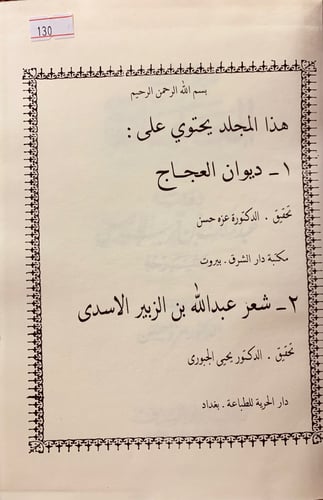 130
بسم الله الرحمن الرحيم
هذا المجلد يحتوي على :
١ـ ديوان العجـاج
تحقيق . الدكتورة عزه حسن
مكتبة دار الشرق . بيروت
٢ـ شعر عبدالله بن الزبير الاسدى
تحقيق . الدكتور يحيى الجبورى
دار الحرية للطباعة . بغداد